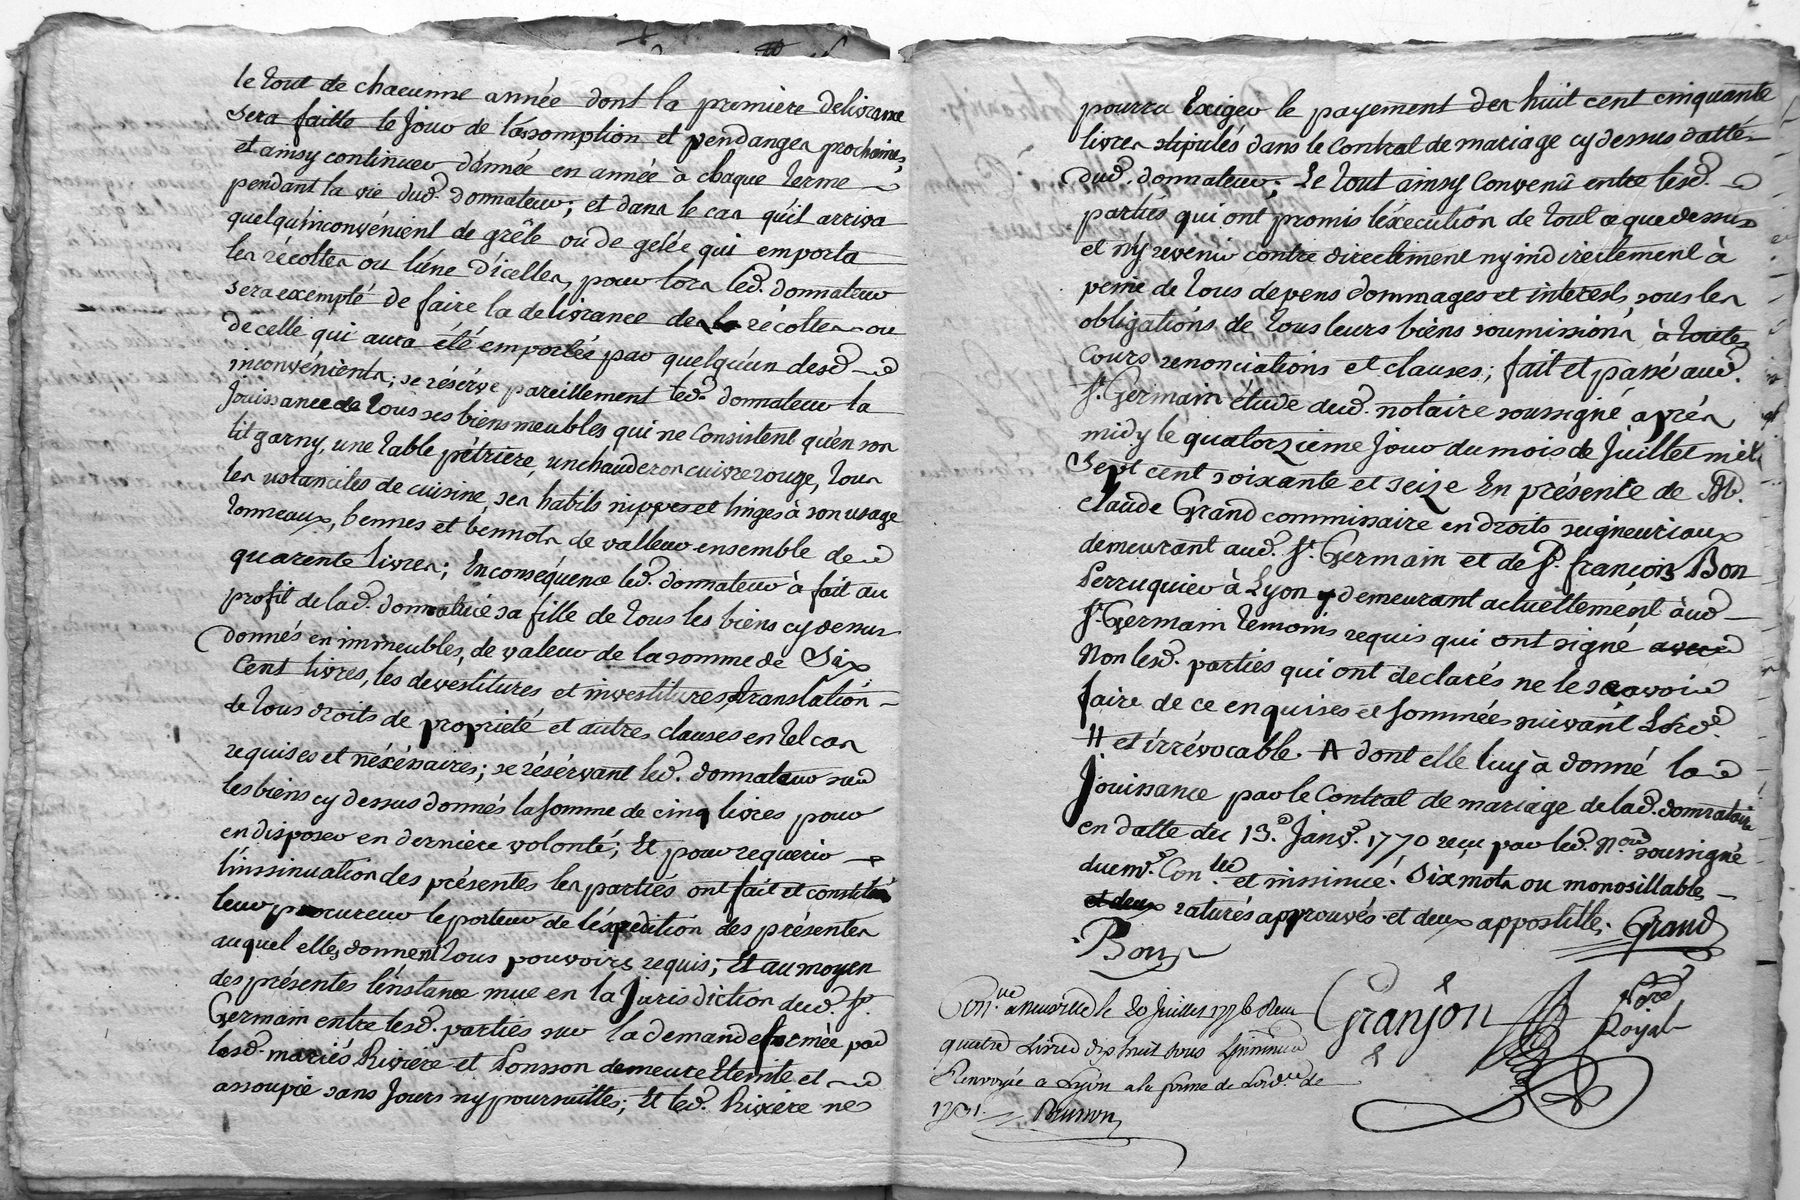 le tout de chacunne année dont la premiere delivrance
sera faitte le Jour de l'assomption et vendanges prochaines,
et ainsy continuer d'année en année à chaque terme
pendant la vie dud. donnateur; et dans le cas qu'il arriva
quelqu'inconvénient de grêle ou de gelée qui emporta
les récoltes ou l'une d'icelles, pour lors led. donnateur
sera exempté de faire la delivrance des récoltes ou
de celle qui aura été emportée par quelqu'un desd.
inconvénients; se résérve pareillement led. donnateur la
Jouissance de tous ses biens meubles qui ne Consistent qu'en son
lit garny, une table pétriere, un chauderon cuivre rouge, tous
les ustanciles de cuisine, ses habits nippes et linges à son usage
tonneaux, bennes et bennots de valleur ensemble de
quarente livres; En conséquence led. donnateur à fait au
profit de lad. donnatrice sa fille de tous les biens cy dessus
donnés en immeubles, de valeur de la somme de Six
Cent livres, les devestitures et investitures, translation
de tous droits de proprieté et autres clauses en tel cas
requises et nécéssaires; se résérvant led. donnateur sur
les biens cy dessus donnés la somme de cinq livres pour
en disposer en derniere volonté; Et pour requerir
l'inssinuation des présentes les partiés ont fait et constitué
leur procureur le porteur de l'éxpedition des présentes
auquel elles donnent tous pouvoirs requis; Et au moyen
des présentes l'instance mue en la Jurisdiction dud. St.
Germain entre lesd. partiés sur la demande formée par
lesd. mariés Riviére et Ponsson demeure Eteinte et
assoupie sans Jours ny poursuittes; Et led. Riviére ne
pourra Exiger le payement des huit cent cinquante
livres stipulés dans le Contrat de mariage cy dessus datté
dud. donnateur; Le tout ainsy Convenû entre lesd.
partiés qui ont promis l'éxecution de tout ce que dessus
et n'y revenir contre directement ny indirectement à
peine de tous depens dommages et interests, sous les
obligations de tous leurs biens soumissions, à toutes
Cours renonciations et clauses; fait et passé aud.
St. Germain étude dud. notaire soussigné après
midy le quatorzieme Jour du mois de Juillet mil
Sept cent soixante et seize En présence de Mr.
Claude Grand commissaire en droits seigneuriaux
demeurant aud. St. Germain et de Sr. françois Bon
Perruquier à Lyon demeurant actuellement àud
St. Germain temoins requis qui ont signé
Non lesd. partiés qui ont declarés ne le scavoir
faire de ce enquises et sommées suivant L'ord.e
H et irrévocable. A dont elle luy à donné la
Jouissance par le Contrat de mariage de lad. donnataire
en datte du 13e. Janv.r 1770 reçu par led. N.re soussigné
duem.t Con.llé et inssinué. Six mots ou monosillables
et deux raturés approuvés et deux appostilles. Grand
Bon
Con.llé a neuville le 20 Juillet 1776 Reçu
quatre Livres dix huit sous
Renvoyée a Lyon a la forme de Lord.ce de
1731.
Granjon
No.re
Royal